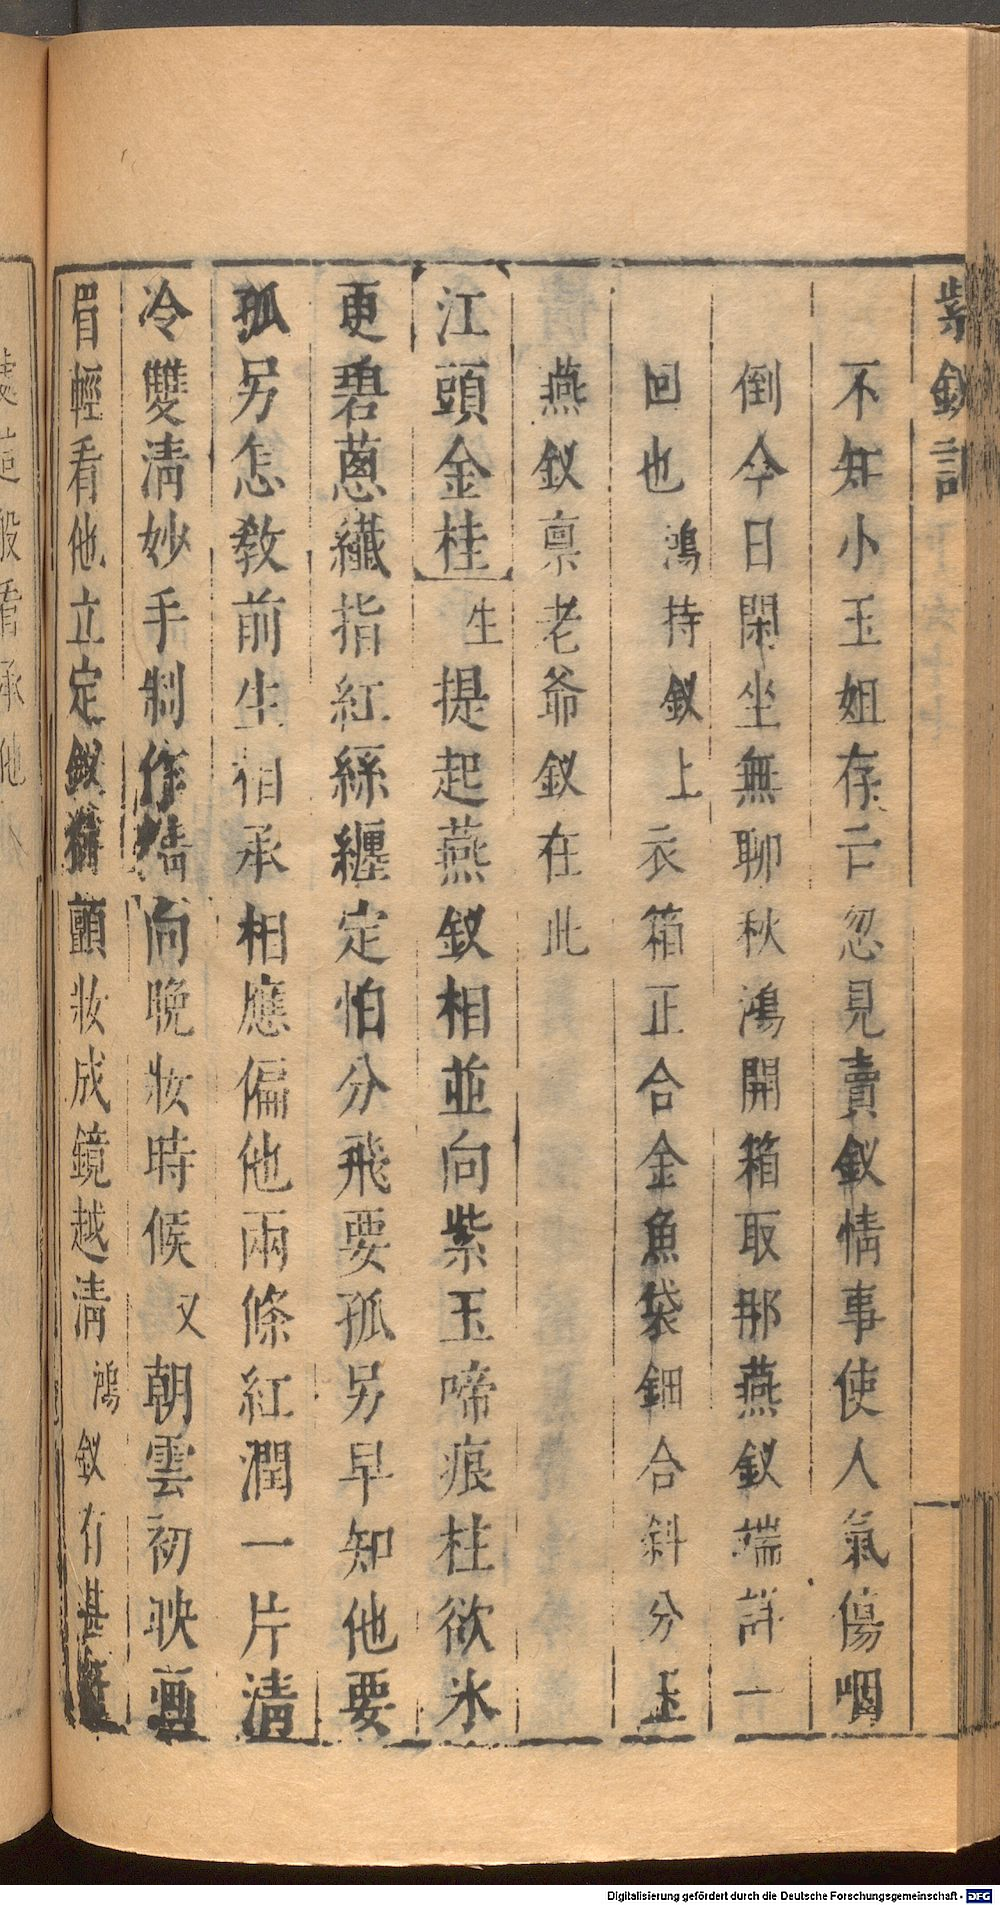 紫釵記
不知小玉姐存亡忽見賣釵情事使人氣傷咽
倒今日閑坐無聊秋鴻開箱取那燕釵端詳一
回也鴻持釵上衣箱正合金魚袋鈿合斜分玉
燕釵稟老爺釵在此
江頭金桂生提起燕釵相並向紫玉啼痕柱欲氷
更碧蔥纖指紅絲纏定怕分飛要孤另早知他要
孤另怎教前生相承相應偏他兩條紅潤一片清
冷雙清妙手制作精向晚妝時候又朝雲初映畫
眉輕看他立定釵頭顫妝成鏡越清鴻釵有甚